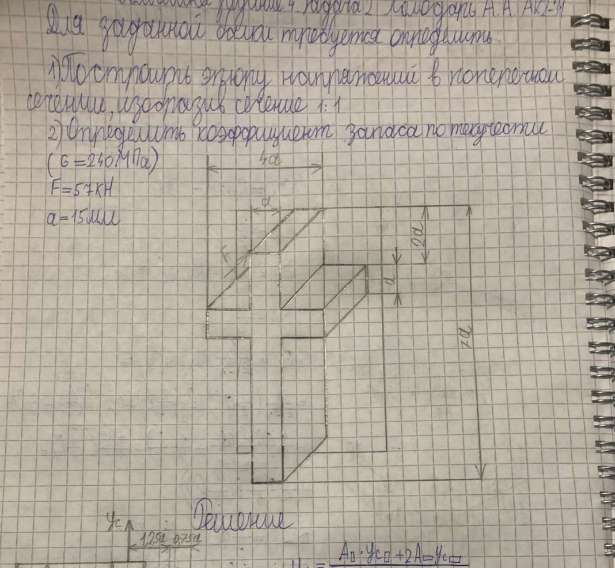 задание 4. Задача 2 Холодарь А.А.
Для заданной балки требуется определить
1) Построить эпюру напряжений в поперечном
сечении, изобразив сечение 1:1
2) Определить коэффициент запаса по текучести
(б=240МПа)
F=57кН
a=15мм
4a
a
F
2a
a
7a
Решение
yc
1,25a 0,75a